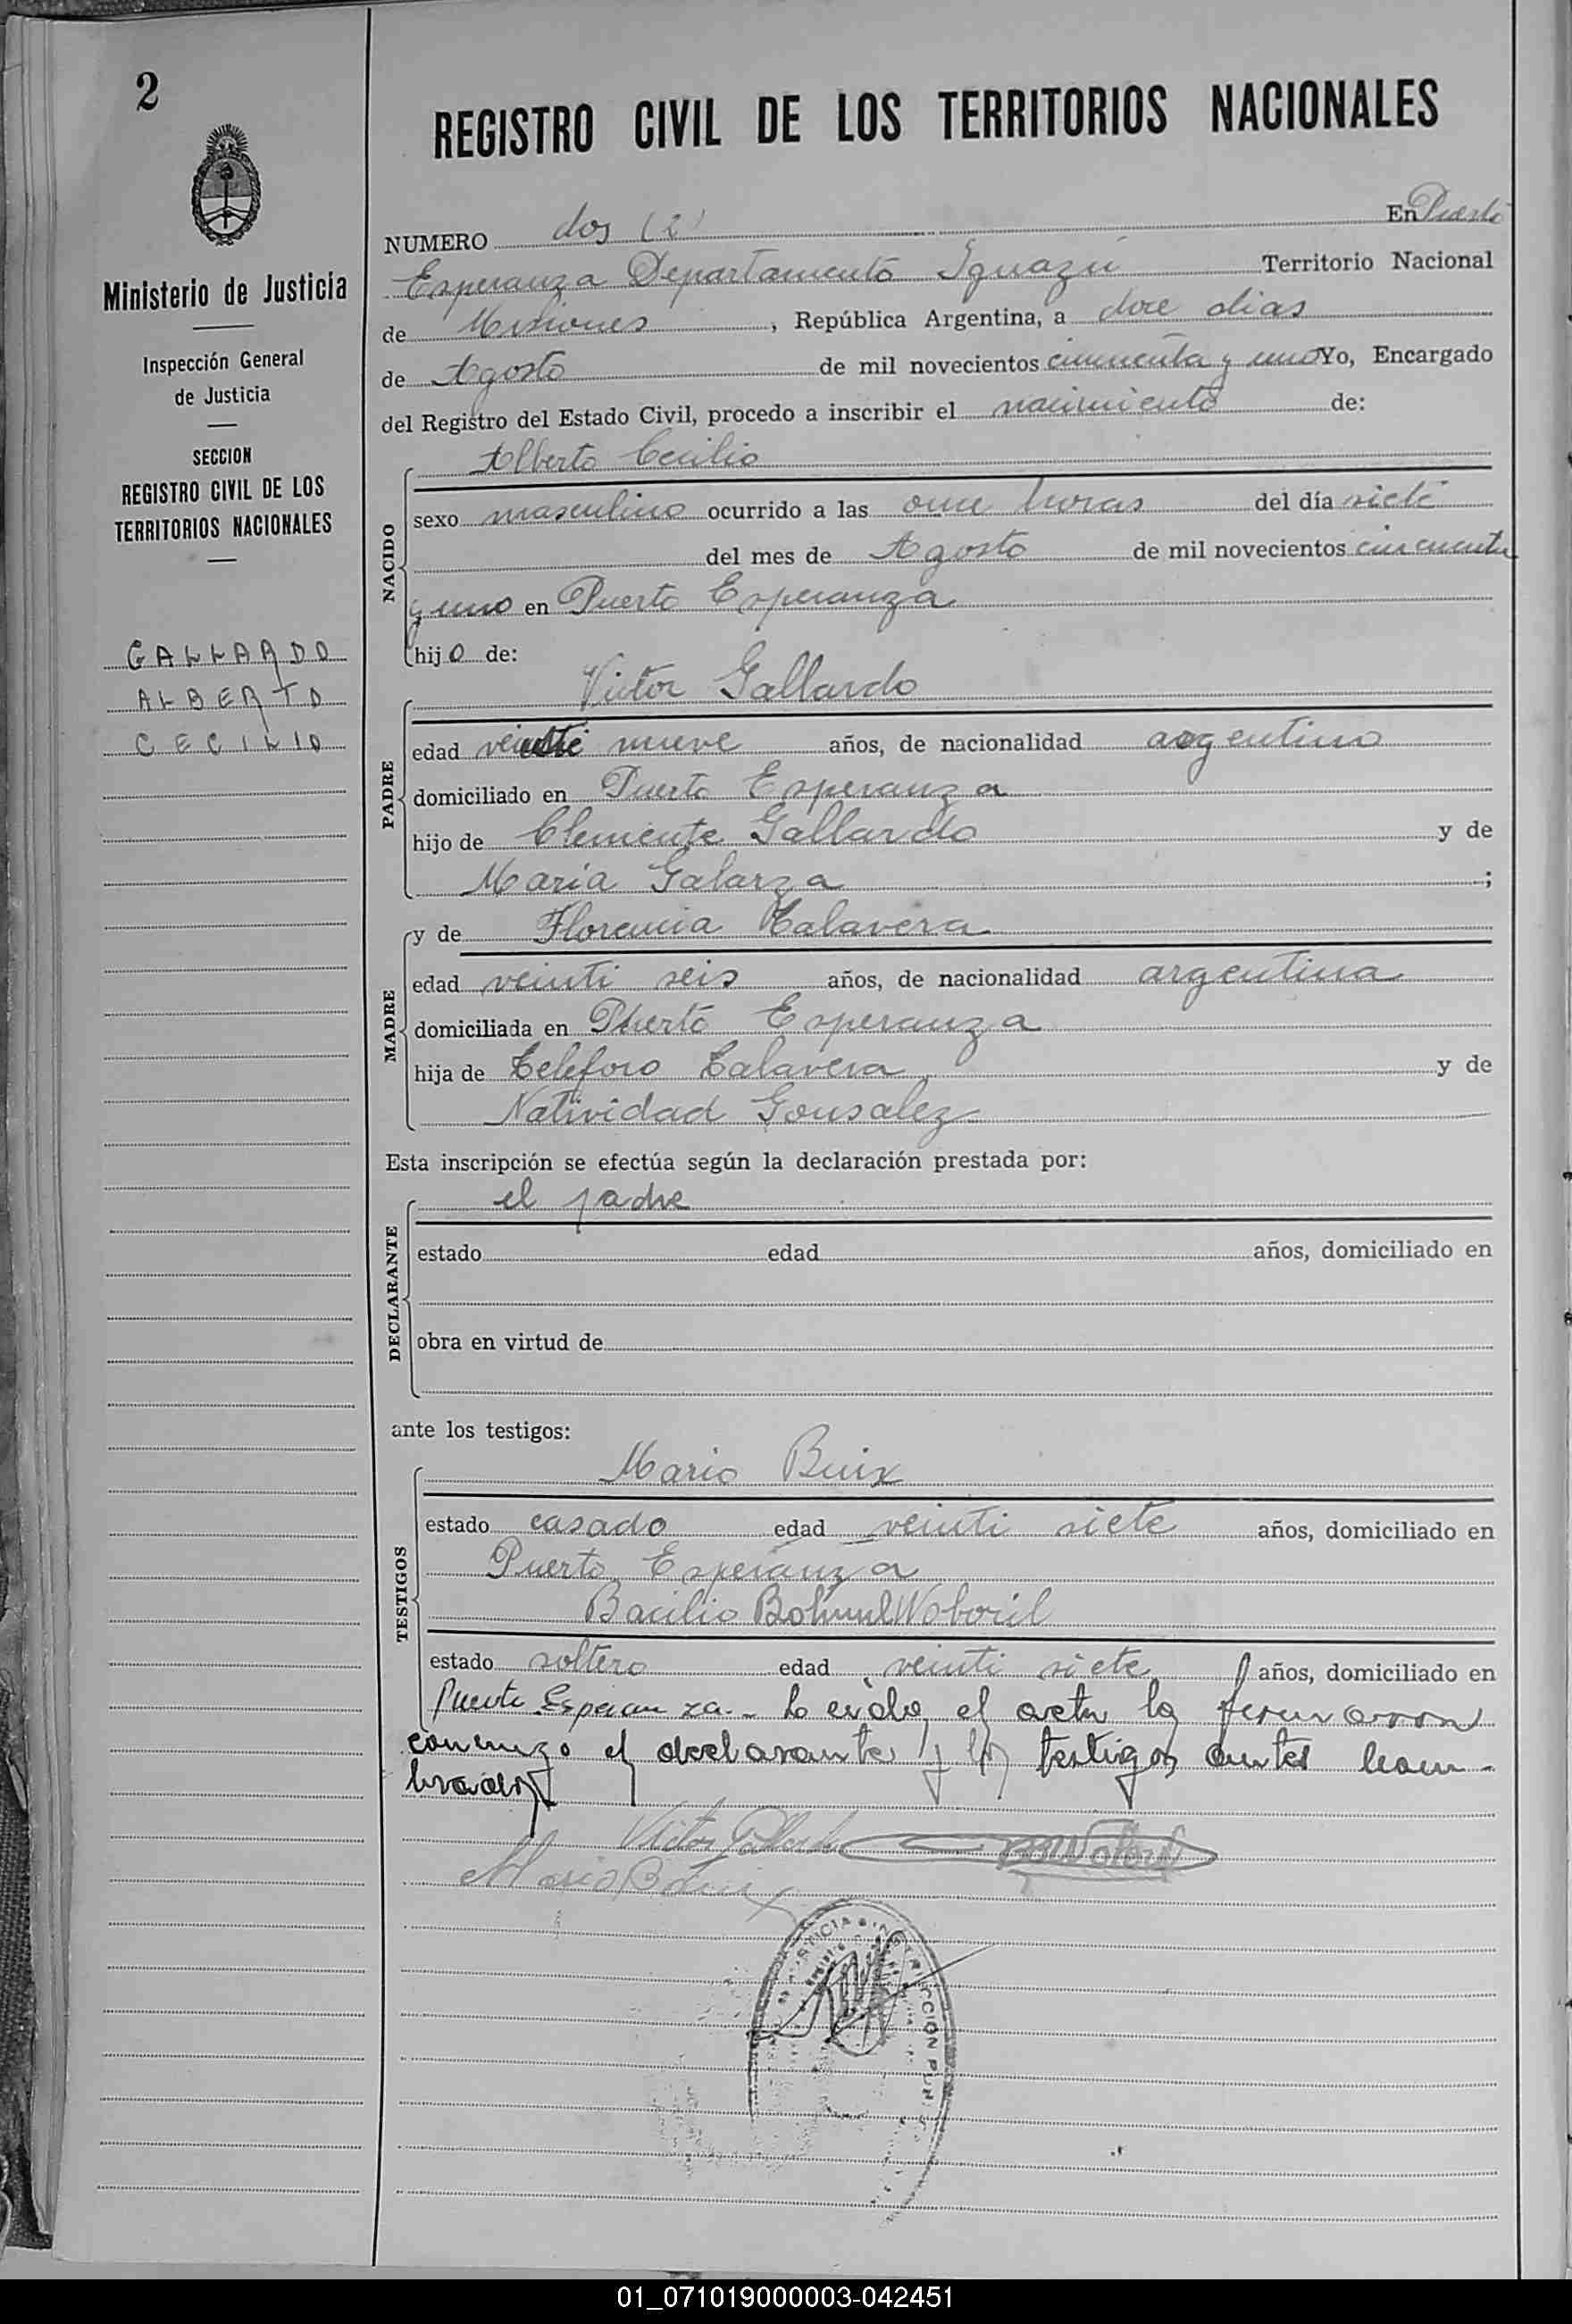 2
REGISTRO CIVIL DE LOS TERRITORIOS NACIONALES
Ministerio de Justicia
Inspección General
de Justicia
SECCION
REGISTRO CIVIL DE LOS
TERRITORIOS NACIONALES
GALLARDO
ALBERTO
CECILIO
NUMERO dos (2) En Puerto
Esperanza Departamento Iguazú Territorio Nacional
de Misiones, República Argentina, a doce dias
de Agosto de mil novecientos cincuenta y uno Yo, Encargado
del Registro del Estado Civil, procedo a inscribir el nacimiento de:
NACIDO
Alberto Cecilio
sexo masculino ocurrido a las once horas del día siete
del mes de Agosto de mil novecientos cincuenta
y uno en Puerto Esperanza
hijo de:
PADRE
Victor Gallardo
edad veinti nueve años, de nacionalidad argentino
domiciliado en Puerto Esperanza
hijo de Clemente Gallardo y de
Maria Galarza;
MADRE
y de Florencia Talavera
edad veinti seis años, de nacionalidad argentina
domiciliada en Puerto Esperanza
hija de Teleforo Talavera y de
Natividad Gonsalez
Esta inscripción se efectúa según la declaración prestada por:
DECLARANTE
el padre
estado edad años, domiciliado en
obra en virtud de
ante los testigos:
TESTIGOS
Mario Buix
estado casado edad veinti siete años, domiciliado en
Puerto Esperanza
Bacilio Bohumil Woboril
estado soltero edad veinti siete años, domiciliado en
Puerto Esperanza.- Leida el acta la firmaron
conmigo el declarante y los testigos antes nom-
brados
Victor Gallardo
Mario
01_071019000003-042451